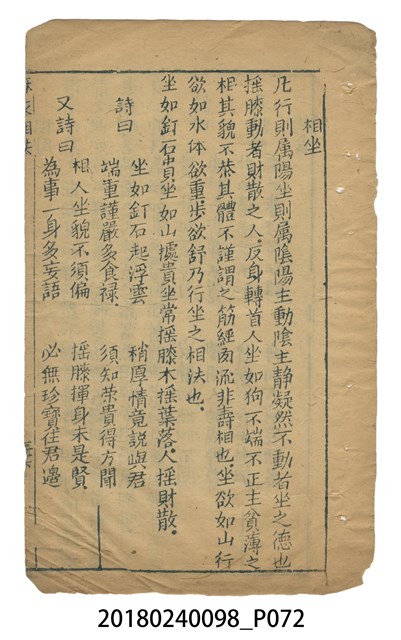 相坐
凡行則属陽坐則属陰陽主動陰主静凝然不動者坐之德也
搖膝動者財散之人反身轉首人坐如狗不端不正主貧薄之
相其貌不恭其體不謹謂之筋經流非壽相也坐欲如山行
欲如水体欲重步欲舒乃行坐之相法也
坐如釘石貴坐如山據貴坐常搖膝木搖葉落人搖財散
詩曰
坐如釘石起浮雲 稍厚情竟説與君
端重謹嚴多食禄 須知荣貴得方聞
又詩曰
相人坐貌不須偏 搖膝揮身未是賢
為事一身多妄語 必無珍寶住君邊
20180240098_P072